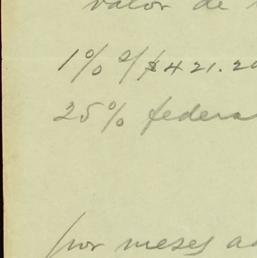 valor de
1% s/$421.20
25% federa
por meses a